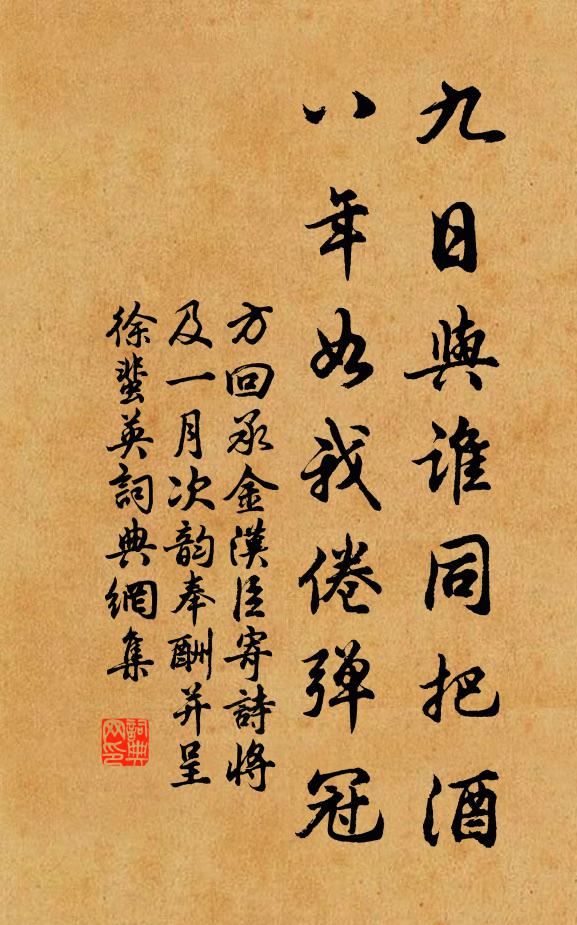 九日與誰同把酒
八年如我倦彈冠
方回承金漢臣寄詩將
及一月次韵奉酬并呈
徐蜚英詞典網集
詞典網印